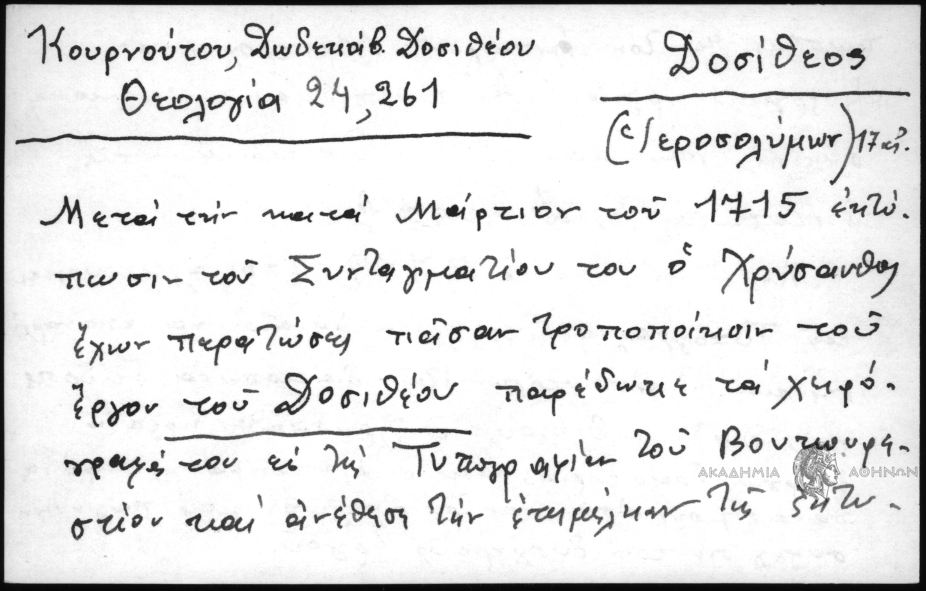 Κουρνούτου, Δωδεκάβ. Δοσιθέου
Θεολογία 24, 261
Δοσίθεος
(Ἱεροσολύμων) 17 αἰ.
Μετὰ τὴν κατὰ Μάρτιον τοῦ 1715 ἐκτύ-
πωσιν τοῦ Συνταγματίου του ὁ Χρύσανθος
ἔχων περατώσει πᾶσαν τροποποίησιν τοῦ
ἔργου τοῦ Δοσιθέου παρέδωκε τὰ χειρό-
γραφά του εἰς τὴν Τυπογραφίαν τοῦ Βουκουρε-
στίου καὶ ἀνέθεσε τὴν ἐπιμέλειαν τῆς ἐκτυ-
ΑΚΑΔΗΜΙΑ ΑΘΗΝΩΝ